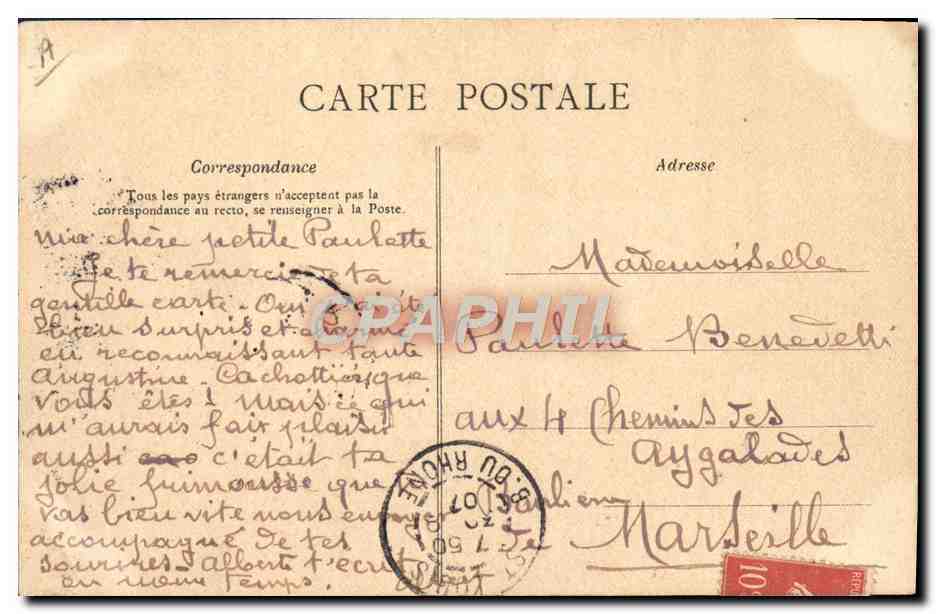 A
CARTE POSTALE
Correspondance
Tous les pays étrangers n'acceptent pas la
correspondance au recto, se renseigner à la Poste.
Ma chère petite Paulette
Je te remercie de ta
gentille carte. Oui j'ai été
bien surpris et charmé
en reconnaissant tante
Augustine. Cachottières que
vous êtes! Mais ce qui
m'aurais fait plaisir
aussi c'était ta
jolie frimousse que
vas bien vite nous
accompagné de tes
sourires. Albert t'écrit
en même temps.
Adresse
Mademoiselle
Paulette Benedetti
aux 4 Chemins des
Aygalades
Banlieue
de Marseille
B. DU RHONE
7 50
30
07
10c
CPAPHIL